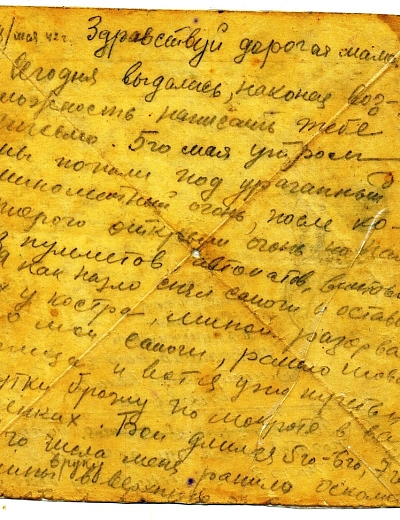 / мая 42 г. Здравствуй дорогая мама
Сегодня выдалась, наконец воз-
можность написать тебе
письмо. 5го мая утром
мы попали под ураганный
минометный огонь, после ко-
торого открыли огонь по нам
из пулеметов, автоматов, винтовок
я как назло снял сапоги и остави
у костра, миной разорва
мои сапоги, ранило
и вот я уже
сутки брожу по мокроте в ва
ленках. Бои длились 5го-6го, 7г
го числа меня ранило осколк
в руку